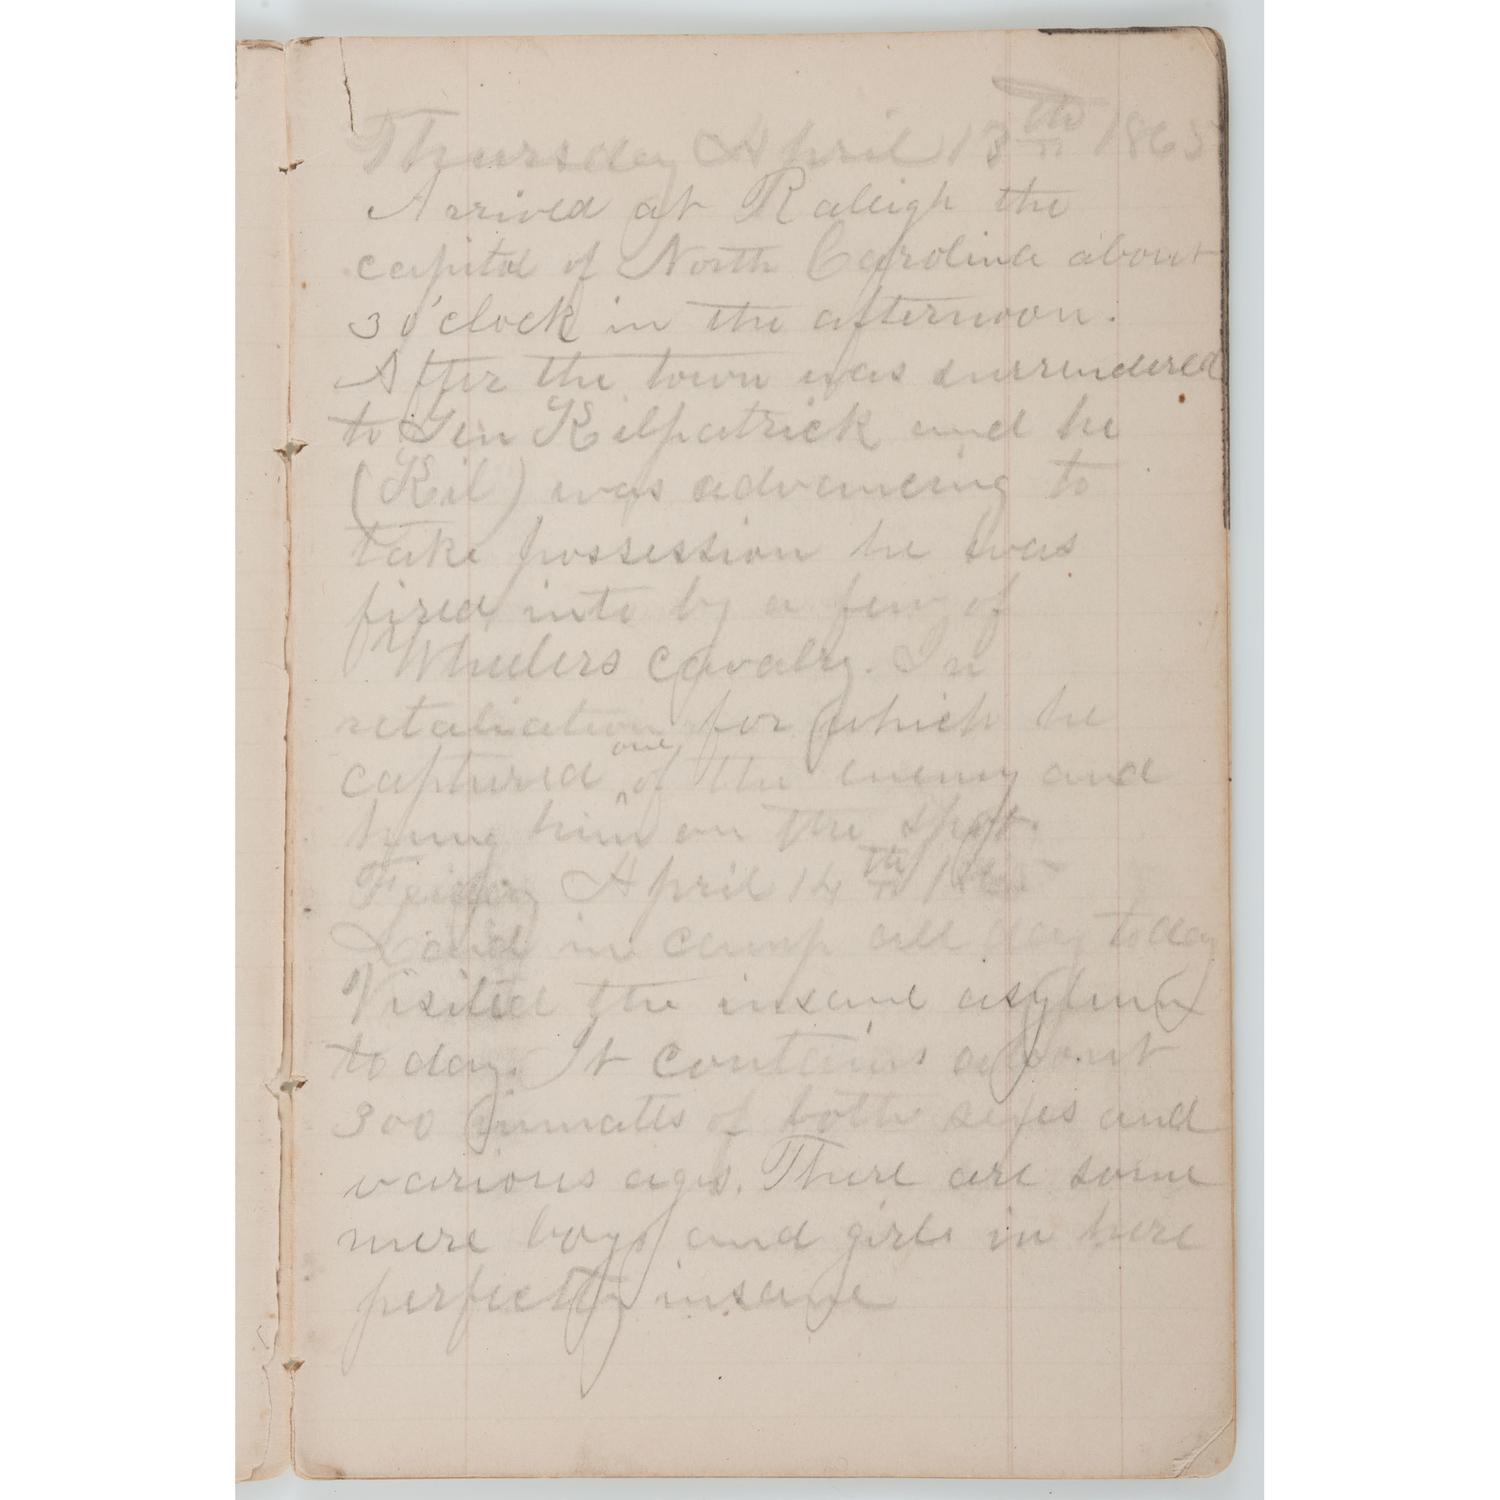 Thursday April 13th 1865
Arrived at Raleigh the
capital of North Carolina about
3 o'clock in the afternoon.
After the town was surrendered
to Gen Kilpatrick and he
(Kil) was advancing to
take possession he was
fired into by a few of
Wheelers cavalry. In
retaliation for which he
captured one of the enemy and
hung him on the spot.
Friday April 14th 1865
Laid in camp all day today
Visited the insane asylum
to day. It contains about
300 inmatts of both sexes and
various ages. There are some
mere boys and girls in here
perfectly insane